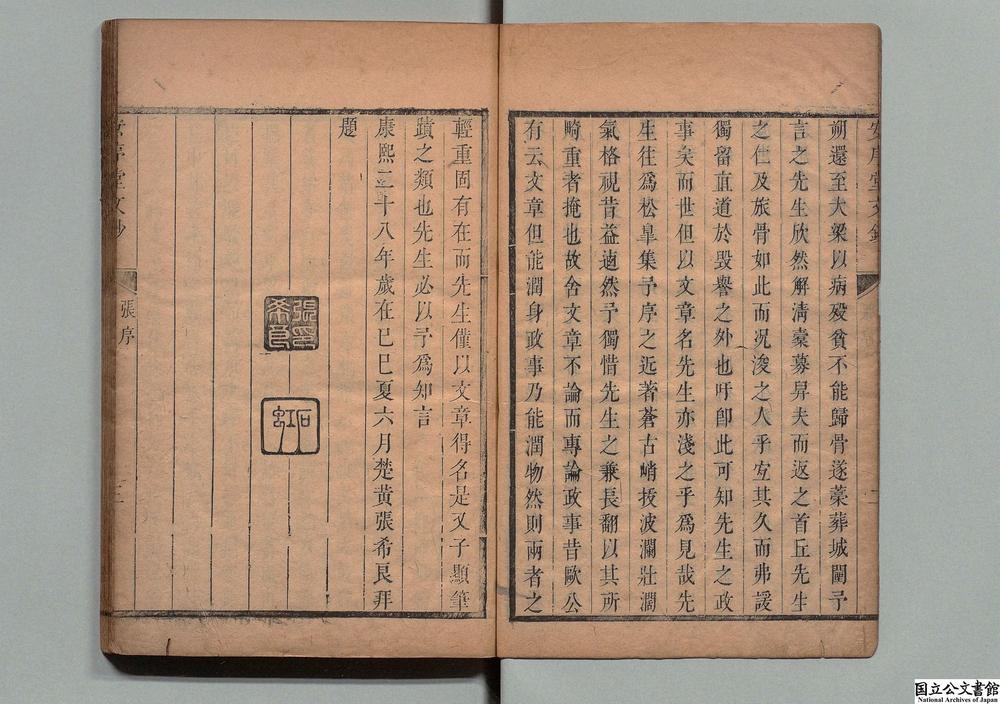 朔還至大梁以病歿貧不能歸骨遂藁葬城闉予
言之先生欣然解清橐募舁夫而返之首丘先生
之仕及旅骨如此而况浚之人乎宜其久而弗諼
獨留直道於毀譽之外也吁卽此可知先生之政
事矣而世但以文章名先生亦淺之乎爲見哉先
生往爲松臯集予序之近著蒼古峭拔波瀾壯濶
氣格視昔益遒然予獨惜先生之兼長翻以其所
畸重者掩也故舍文章不論而專論政事昔歐公
有云文章但能潤身政事乃能潤物然則兩者之
輕重固有在而先生僅以文章得名是又子顯筆
蹟之類也先生必以予爲知言
康熙二十八年歲在巳巳夏六月楚黃張希良拜
題
張印希良
石虹
張序
三
国立公文書館
National Archives of Japan